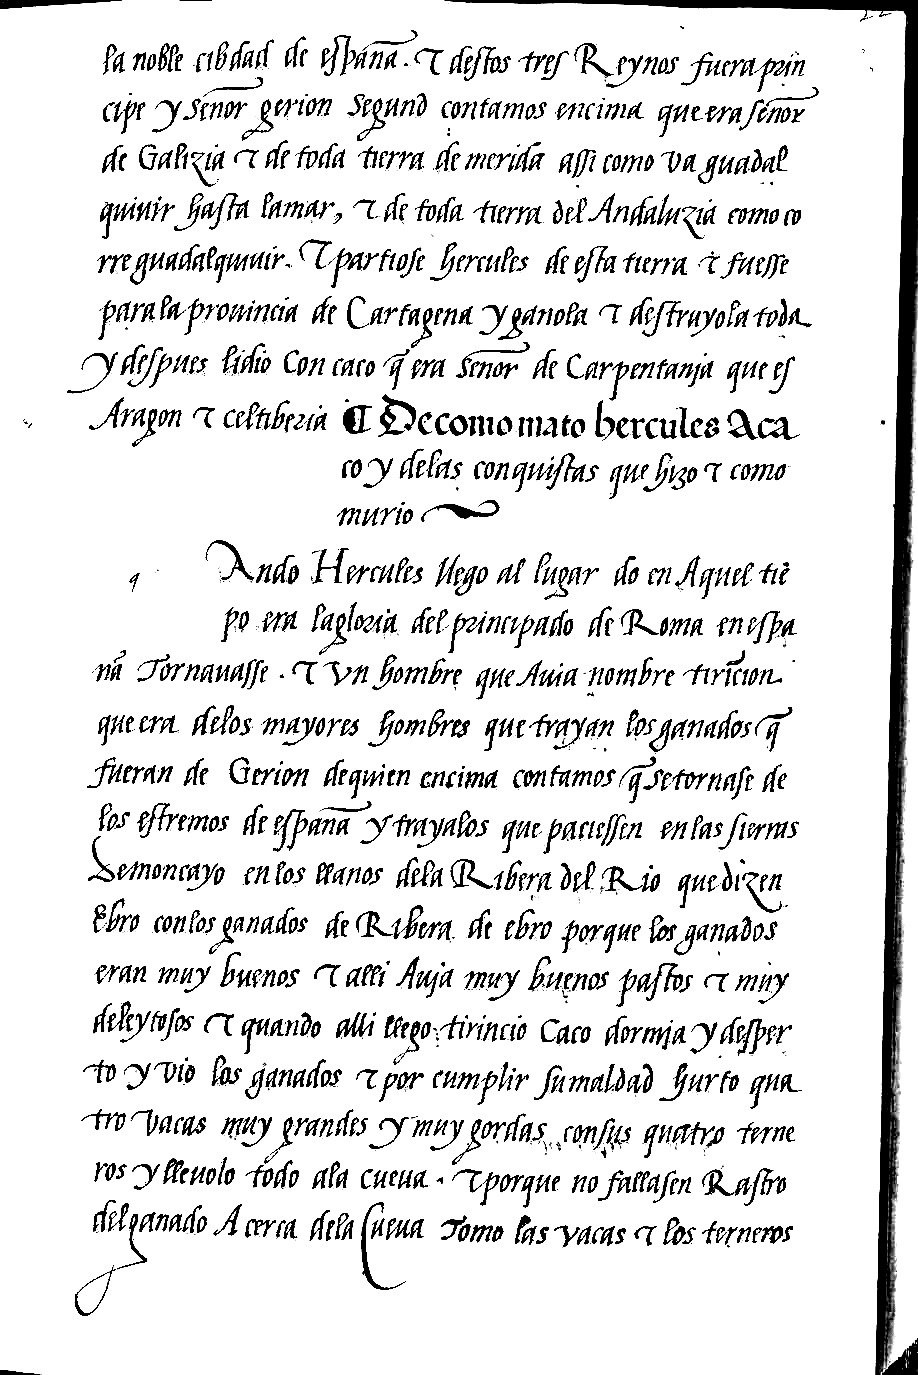 22
la noble cibdad de españa. τ destos tres Reynos fuera prin
cipe y señor gerion Segund contamos encima que era señor
de Galizia τ de toda tierra de merida assi como va guadal
quiuir hasta lamar, τ de toda tierra del Andaluzia como co
rre guadalquiuir. τ partiose hercules de esta tierra τ fuesse
para la prouincia de Cartagena y ganola τ destruyola toda
y despues lidio Con caco q̃ era señor de Carpentanja que es
Aragon τ celtiberia ¶ De como mato hercules Aca
co y delas conquistas que hizo τ como
murio
Ando Hercules llego al lugar do en Aquel tiẽ
po era la gloria del principado de Roma en espa
ña Tornauasse. τ vn hombre que Auia nombre tiricion
que era delos mayores hombres que trayan los ganados q̃
fueran de Gerion de quien encima contamos q̃ se tornase de
los estremos de españa y trayalos que paciessen en las sierras
Demoncayo en los llanos dela Ribera del Rio que dizen
Ebro con los ganados de Ribera de ebro porque los ganados
eran muy buenos τ alli Auja muy buenos pastos τ muy
deleytosos τ quando alli llego tirincio Caco dormja y desper
to y vio los ganados τ por cumplir su maldad hurto qua
tro vacas muy grandes y muy gordas con sus quatro terne
ros y lleuolo todo ala cueua. τ porque no fallasen Rastro
del ganado Acerca dela Cueua Tomo las vacas τ los terneros